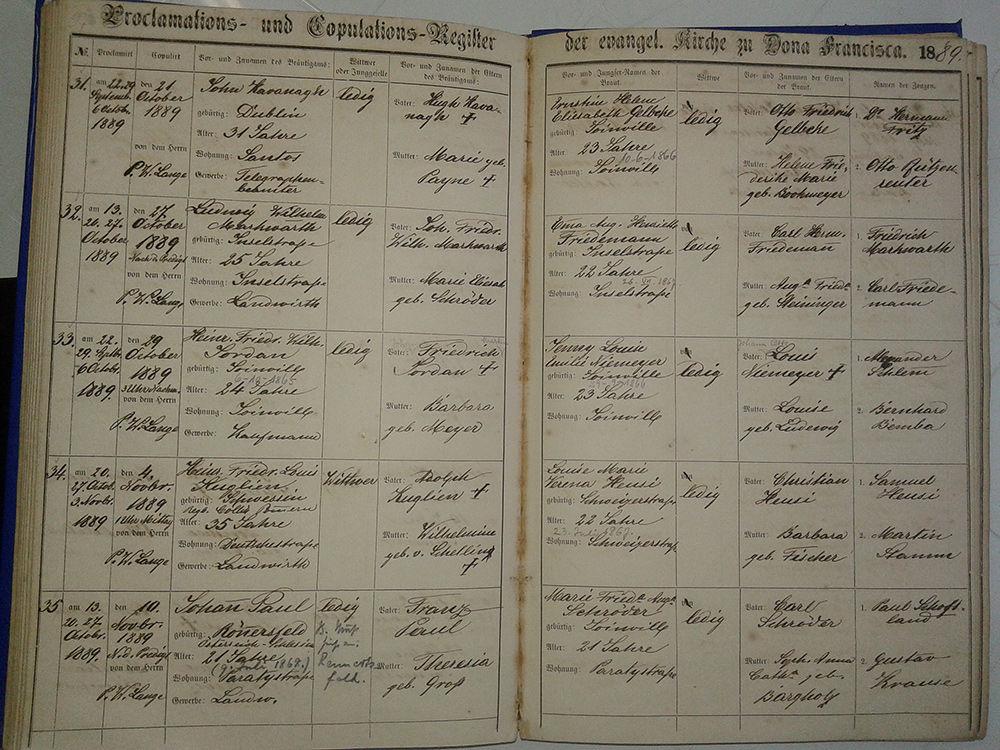 Proclamations- und Copulations-Register
der evangel. Kirche zu Dona Francisca. 1889.
№ Proclamirt Copulirt Vor- und Zunamen des Bräutigams: Wittwer oder Junggeselle Vor- und Zunamen der Eltern des Bräutigams:
Vor- und Jungfer-Namen der Braut Wittwe Vor- und Zunamen der Eltern der Braut: Namen der Zeugen.
31. am 22. 29 den 21. John Kavanagh ledig Vater: Hugh Kava-
Septemb. October gebürtig: Dublin nagh +
6 Octob. 1889 Alter: 31 Jahre
1889
von dem Herrn Wohnung: Santos Mutter: Marie geb.
P. W. Lange Gewerbe: Telegraphen- Payne +
beamter
Ernstine Helene ledig Vater: Otto Friedrich Dr Hermann
Elisabeth Gelbcke Gelbcke Fritz
gebürtig: Joinville
Alter: 23 Jahre
10-6-1866 Mutter: Helene Frie- 2. Otto
Wohnung: Joinville derike Marie reuter
geb.
32. am 13. den 27. Ludwig Wilhelm ledig Vater: Joh. Friedr.
20. 27. October Markwarth Wilh. Markwarth
October 1889 gebürtig: Inselstraße
1889 Nach d. Predigt Alter: 25 Jahre
von dem Herrn Wohnung: Inselstraße Mutter: Marie Elisab.
P. W. Lange Gewerbe: Landwirth geb. Schröder
Ema Aug. Henriette ledig Vater: Carl Herm. 1. Friedrich
Friedemann Friedeman Markwarth
gebürtig: Inselstraße
Alter: 22 Jahre
1867 Mutter: Augte Friedke 2. Karl Friede-
Wohnung: Inselstraße geb. Steininger mann
33. am 22. den 29 Heinr. Friedr. Wilh. ledig Vater: Friedrich
29. Septbr. October Jordan Jordan +
6 October 1889 gebürtig: Joinville
1889. 3 Uhr Nachm. 1865
von dem Herrn Alter: 24 Jahre
P. W. Lange Wohnung: Joinville Mutter: Barbara
Gewerbe: Kaufmann geb. Meyer
Jenny Louise ledig Vater: Louis 1. Alexander
Amélie Niemeyer Niemeyer + Schlem
gebürtig: Joinville
1866
Alter: 23 Jahre
Wohnung: Joinville Mutter: Louise 2. Bernhard
geb. Ludewig Bemba
34. am 20. den 4. Heinr. Friedr. Louis Wittwer Vater: Adolph
27 Octob. Novbr. Kuglien Kuglien +
3. Novbr. 1889 gebürtig: Schwessin
1889 1 Uhr Mittag Alter: 35 Jahre
von dem Herrn Wohnung: Deutschestraße Mutter: Wilhelmine
P. W. Lange Gewerbe: Landwirth geb. v. Schelling +
Louise Marie ledig Vater: Christian 1. Samuel
Verena Heusi Heusi Heusi
gebürtig: Schweizerstraße
Alter: 22 Jahre
23. Juli 1867. Mutter: Barbara 2. Martin
Wohnung: Schweizerstraße geb. Fischer Stamm
35 am 13. den 10. Johan Paul ledig Vater: Franz
20. 27 Novbr. gebürtig: Rönersfeld Paul
Octobr. 1889 Österreich-Schlesien
1889. N. d. Predigt Alter: 21 Jahre
von dem Herrn 1868.) Mutter: Theresia
P. W. Lange Wohnung: Paratystraße geb. Groß
Gewerbe: Landw.
Marie Friedke Augte ledig Vater: Carl 1. Paul
Schröder Schröder land
gebürtig: Joinville
Alter: 21 Jahre
Wohnung: Paratystraße Mutter: Soph. Anna 2. Gustav
Cath. geb. Krause
Bargholz